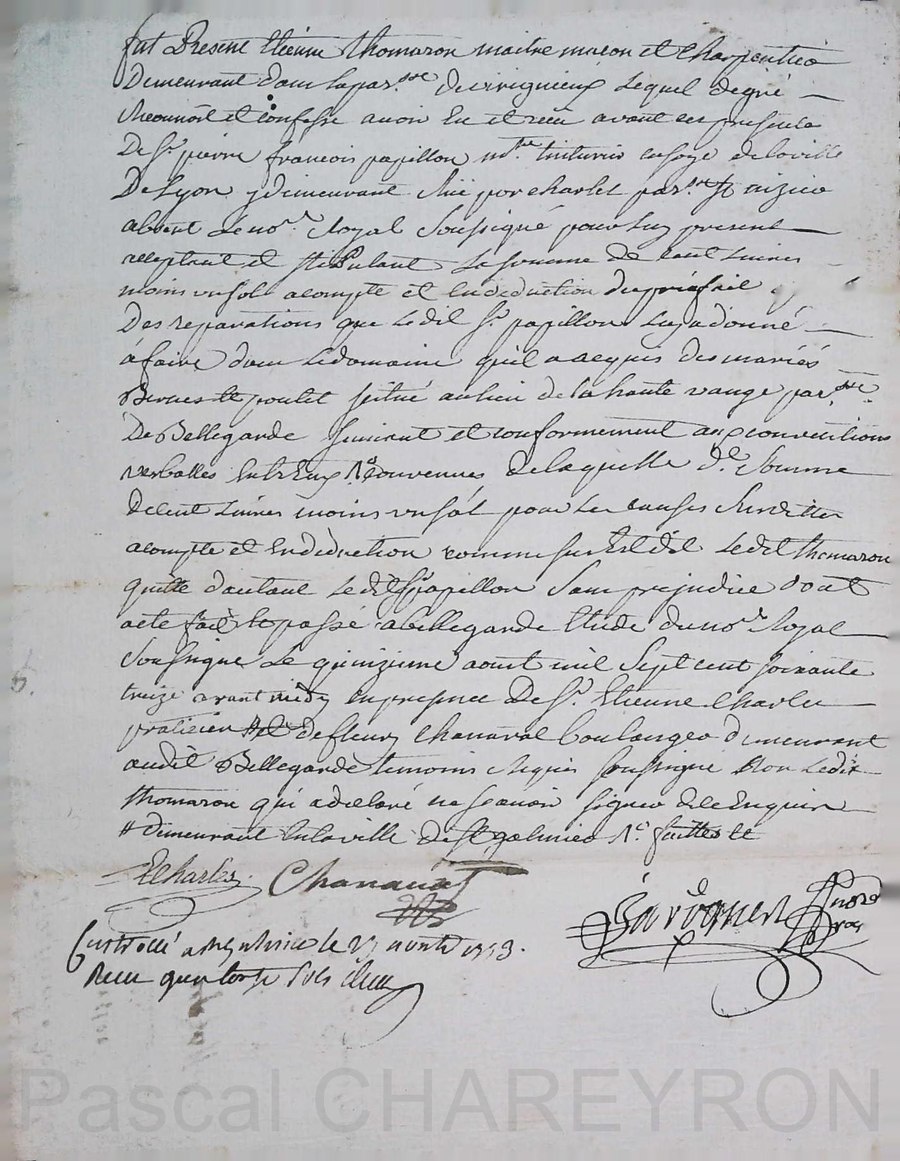 fut Présent Etienne thomaron maitre macon et charpentier
Demeurant dans la par.sse de virigneux Lequel de gré
Reconnoit et confesse avoir Eu et reçu avant ces presente
De Sr. pierre francois papillon m.tre tinturier en soye de la ville
De Lyon y demeurant Rüe porcharlet par.sse St nizier
absent Le no.re Royal Soussigné pour Luy present
acceptant et stipulant La Somme de Cent Livres
moins un sol a compte et En deduction du prix fait
Des reparations que Ledit Sr. papillon Luy a donné
à faire dans Le domaine qu'il a acquis des mariés
et poulet scitué au lieu de la haute vange par.sse
De Bellegarde suivant et conformement aux conventions
verballes Entr'Eux convenues de laquelle d.e Somme
de Cent Livres moins un sol pour Les causes Susdittes
acompte et En deduction comme sus Est dit Ledit thomaron
quitte d'autant Ledit Sr papillon Sans prejudice Dont
acte fait et passé a Bellegarde Etude du no.re Royal
Soussigné Le quinzieme aoust mil Sept cent soixante
treize avant midy En presence De Sr. Etienne Charles
praticien # et de fleury Chanavat boulanger demeurant
audit Bellegarde temoins Requis soussignés Non Ledit
thomaron qui a declaré ne sçavoir signer de ce Enquis
# demeurant En la ville de St galmier
ECharles Chanavat
not Roy
Controllé a St galmier le 27 aoust 1773.
Recu quatorze sols